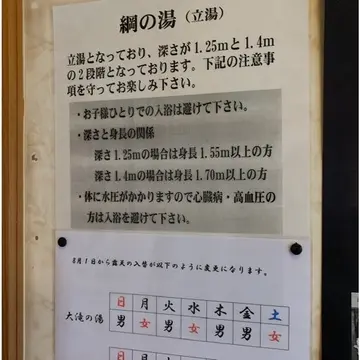 綱の湯（立湯）
立湯となっており、深さが1.25mと1.4m
の２段階となっております。下記の注意事
項を守ってお楽しみ下さい。
・お子様ひとりでの入浴は避けて下さい。
・深さと身長の関係
深さ1.25mの場合は身長1.55m以上の方
深さ1.4mの場合は身長1.70m以上の方
・体に水圧がかかりますので心臓病・高血圧の
方は入浴を避けて下さい。
8月1日から露天の入替が以下のように変更になります。
日 月 火 水 木 金 土
大滝の湯 男 女 男 女 男 女 男
日 月 火 水 木 金 土